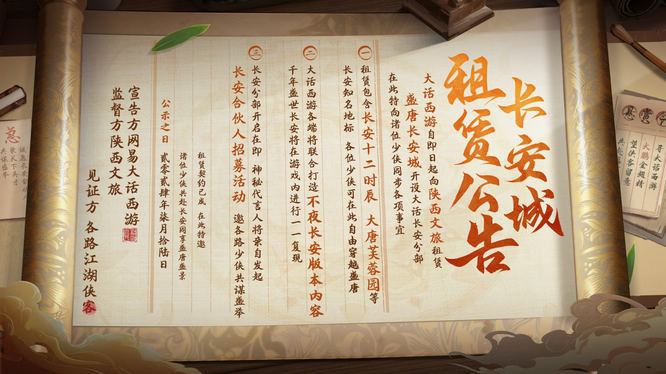 长安城
租赁公告
大话西游自即日起向陕西文旅租赁
盛唐长安城开设大话长安分部
在此特向诸位少侠同步各项事宜
一
租赁包含长安十二时辰 大唐芙蓉园等
长安知名地标 各位少侠可在此自由穿越盛唐
二
大话西游各端将联合打造不夜长安版本内容
千年盛世长安将在游戏内进行一一复现
三
长安分部开启在即 神秘代言人将亲自发起
长安合伙人招募活动 邀各路少侠共谋盛举
租赁契约已成 在此特邀
诸位少侠共赴长安同享盛唐盛景
公示之日 贰零贰肆年柒月拾陆日
宣告方网易大话西游
监督方陕西文旅
见证方 各路江湖侠客